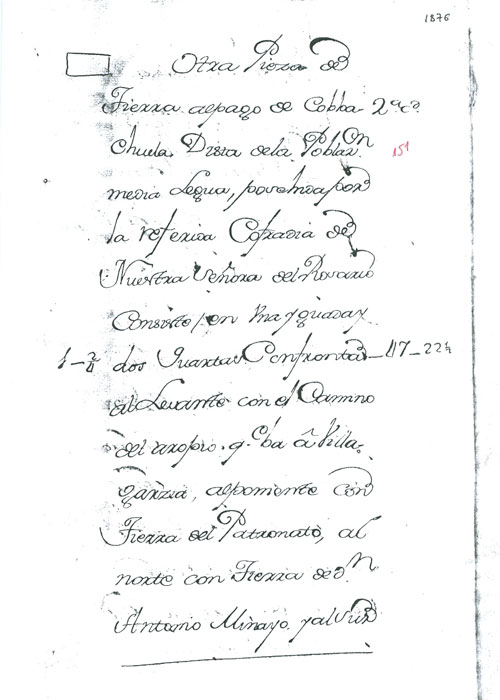 1876
Otra Pieza de
Tierra alpago de Cobba-
chuela Dista dela Poblaz.on 151
media Legua, posehida por
la referida Cofradia de
Nuestra Señora del Rosario
Consiste en Una yguada y
1-2/4 dos Quartas Confronta - 47-22½
al Levante con el Camino
del arroyo q.e ba â Villa
garzia, alponiente con
Tierra del Patronato, al
norte con Tierra de d.n
Antonio Minayo yal Sur